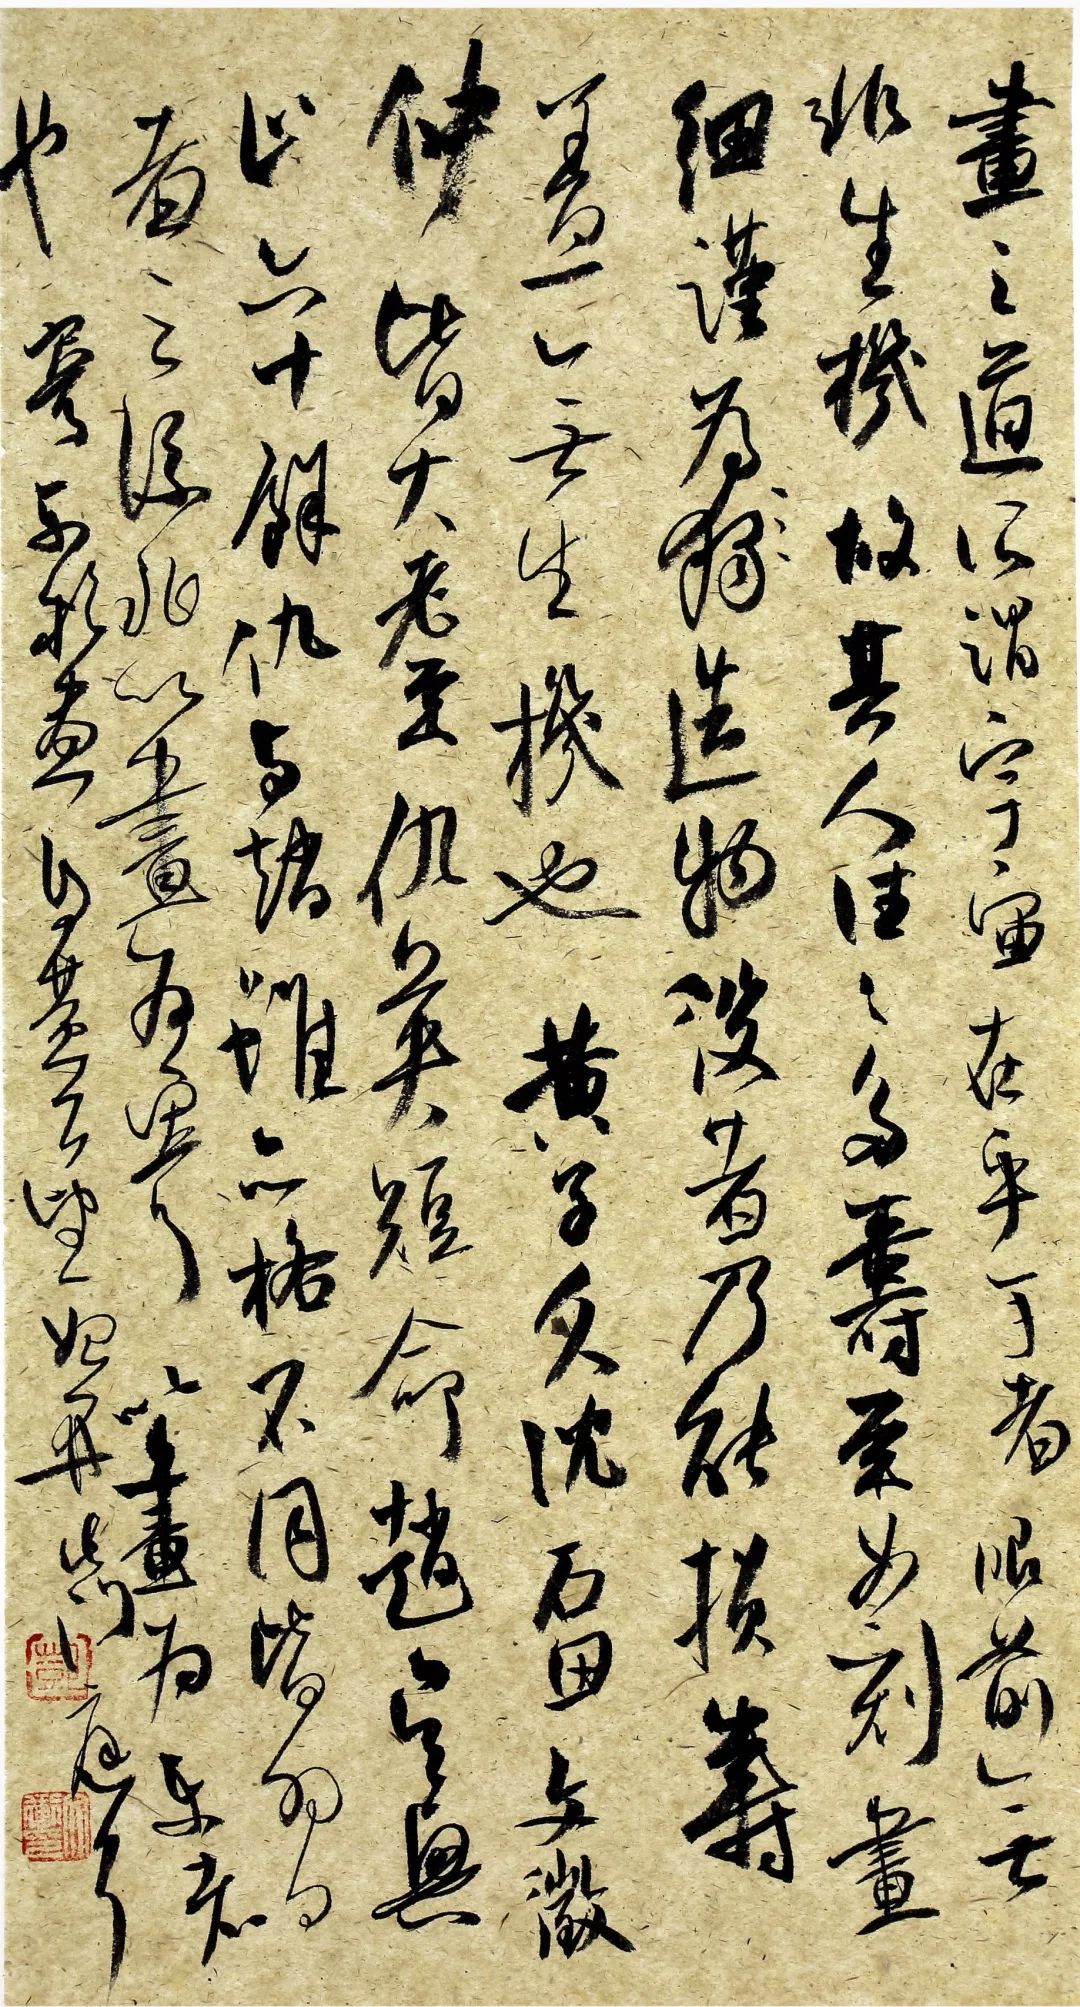 畫之道所謂宇宙在乎手者眼前無
非生機故其人往々多壽至如刻畫
細謹為造物役者乃能損壽
蓋無生機也黃子久沈石田文徵
仲皆大耋仇英短命趙吳興
止六十餘仇與趙雖品格不同皆習者
之流非以畫為寄以畫為樂者
也寄樂於畫自黃公望始開此門庭耳